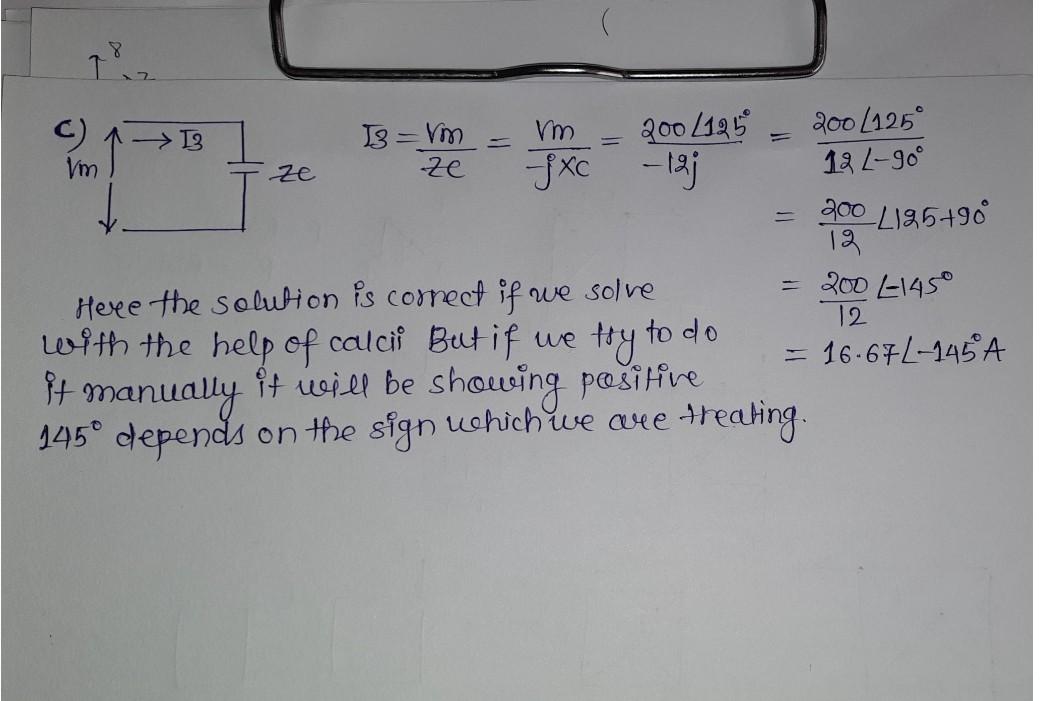 8
2
(
C)
Vm
→ I3
Zc
I3 = Vm/Zc = Vm/-jXc = 200∠125°/-12j = 200∠125°/12∠-90°
= 200/12 ∠125+90°
= 200/12 ∠-145°
= 16.67∠-145°A
Here the solution is correct if we solve
with the help of calci. But if we try to do
it manually it will be showing positive
145° depends on the sign which we are treating.